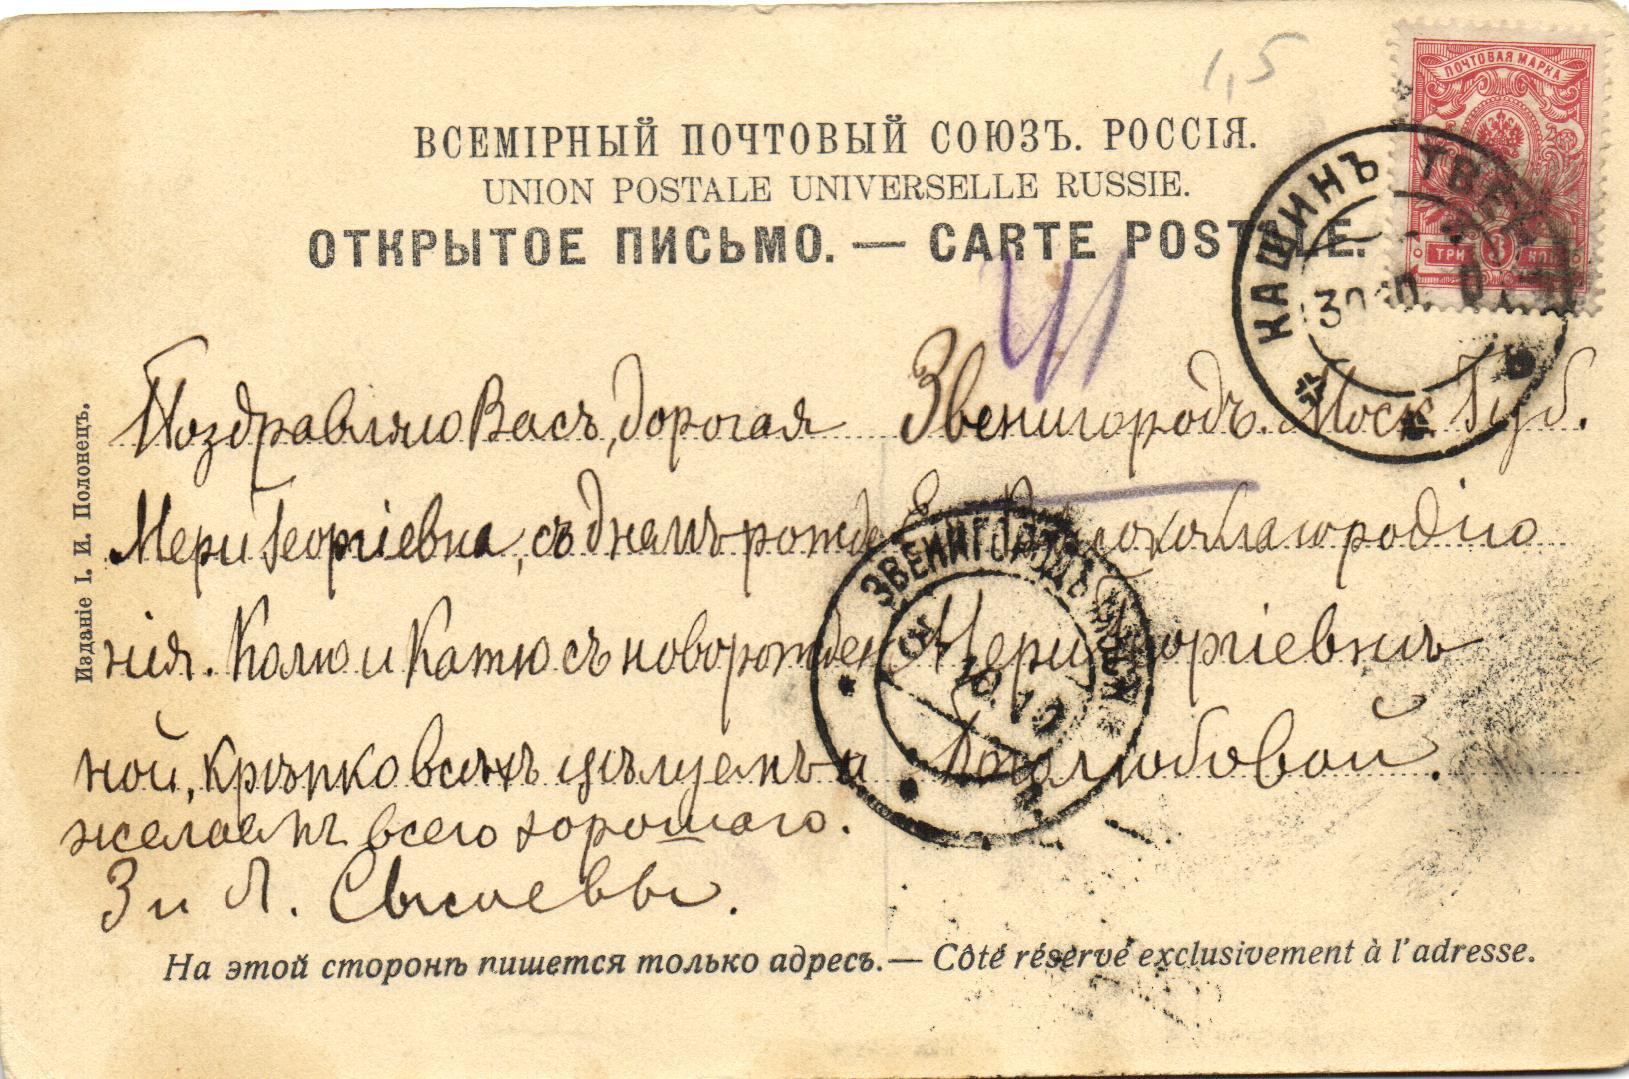 1,5
ПОЧТОВАЯ МАРКА
ТРИ 3 КОП
ВСЕМІРНЫЙ ПОЧТОВЫЙ СОЮЗЪ. РОССІЯ.
UNION POSTALE UNIVERSELLE RUSSIE.
ОТКРЫТОЕ ПИСЬМО. — CARTE POSTALE.
КАШИНЪ ТВЕР
Поздравляю Васъ, дорогая
Мери Георгіевна, съ днемъ рожде
нія. Колю и Катю съ новорожден
ной, крѣпко всѣхъ цѣлуемъ и
желаемъ всего хорошаго.
З и Л. Сысоевы.
Звенигородъ. Моск Губ.
Е. Высокоблагородію
Мери Георгіевнѣ
Боголюбовой.
ЗВЕНИГОРОДЪ МОСК
10.10
Изданіе І. И. Полонецъ.
На этой сторонѣ пишется только адресъ. — Côté réservé exclusivement à l'adresse.